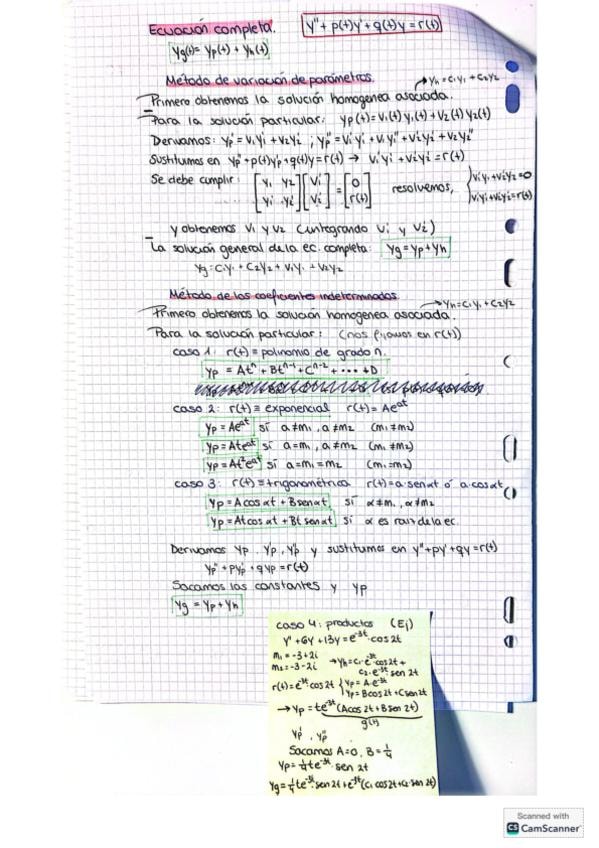 Ecuación completa. y'' + p(t)y' + q(t)y = r(t)
yg(t) = yp(t) + yh(t)
Método de variación de parámetros. → yh = c1y1 + c2y2
Primero obtenemos la solución homogenea asociada.
Para la solución particular: yp(t) = v1(t) y1(t) + v2(t) y2(t)
Derivamos: yp' = v1y1' + v2y2' ; yp'' = v1'y1' + v1y1'' + v2'y2' + v2y2''
Sustituimos en yp'' + p(t)yp' + q(t)y = r(t) → v1'y1' + v2'y2' = r(t)
Se debe cumplir: [y1 y2; y1' y2'] [v1'; v2'] = [0; r(t)] resolvemos, { v1'y1 + v2'y2 = 0
v1'y1' + v2'y2' = r(t)
y obtenemos v1 y v2 (integrando v1' y v2')
La solución general de la ec. completa: yg = yp + yh
yg = c1y1 + c2y2 + v1y1 + v2y2
Método de los coeficientes indeterminados → yh = c1y1 + c2y2
Primero obtenemos la solución homogenea asociada.
Para la solución particular: (nos fijamos en r(t))
caso 1: r(t) = polinomio de grado n.
yp = At^n + Bt^n-1 + C^n-2 + ... + D
caso 2: r(t) = exponencial r(t) = Ae^at
yp = Ae^at si a ≠ m1, a ≠ m2 (m1 ≠ m2)
yp = Ate^at si a = m1, a ≠ m2 (m1 ≠ m2)
yp = At²e^at si a = m1 = m2 (m1 = m2)
caso 3: r(t) = trigonométrica r(t) = a·sen αt ó a·cos αt
yp = A cos αt + B sen αt si α ≠ m1, α ≠ m2
yp = At cos αt + Bt sen αt si α es raiz de la ec.
Derivamos yp, yp', yp'' y sustituimos en y'' + py' + qy = r(t)
yp'' + pyp' + qyp = r(t)
Sacamos las constantes y yp
yg = yp + yh
caso 4: productos (Ej)
y'' + 6y + 13y = e^-3t·cos 2t
m1 = -3+2i → yh = c1·e^-3t·cos 2t +
m2 = -3-2i c2·e^-3t sen 2t
r(t) = e^-3t cos 2t { yp = A·e^-3t
yp = B cos 2t + C sen 2t
→ yp = te^-3t (A cos 2t + B sen 2t)
g(t)
yp', yp''
Sacamos A = 0, B = 1/4
yp = 1/4 te^-3t sen 2t
yg = 1/4 te^-3t·sen 2t + e^-3t (c1 cos 2t + c2 sen 2t)
Scanned with
CS CamScanner